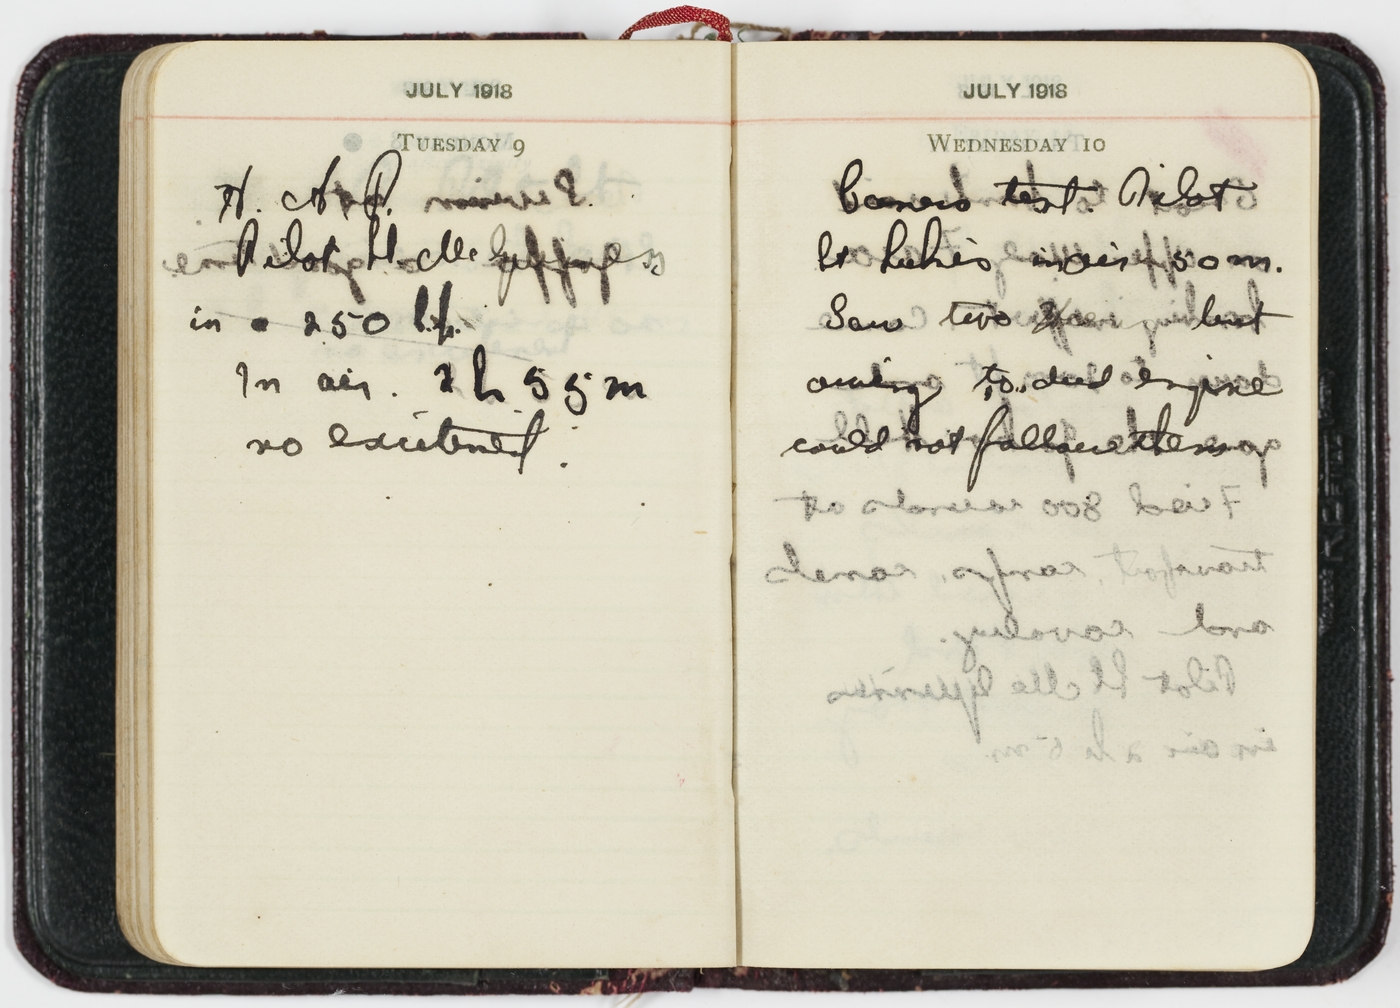 JULY 1918
TUESDAY 9
H. A. P.
Pilot Lt. Mc
in a 250 h.p.
In air. 2 h 55 m
no excitement.
JULY 1918
WEDNESDAY 10
Camera test. Pilot
Lt in air 50 m.
Saw two but
owing to dud engine
could not follow them